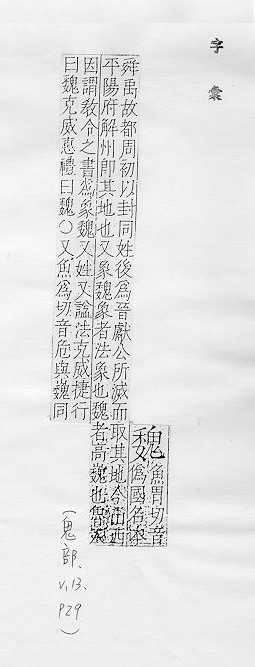 字彙
魏
魚胃切音
爲國名本
舜禹故都周初以封同姓後爲晉獻公所滅而
取其地今山西
平陽府解州即其地也又象魏象者法象也魏
者高巍也魯災
因謂敎令之書爲象魏又姓又諡法克威捷行
曰魏克威惠禮曰魏○又魚爲切音危與巍同
(鬼部、V.13. P29)